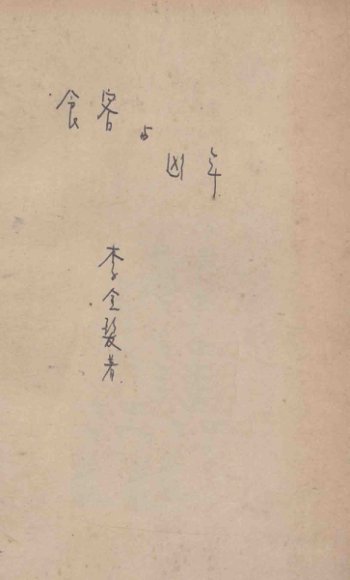 食客与
凶年
李金髮著